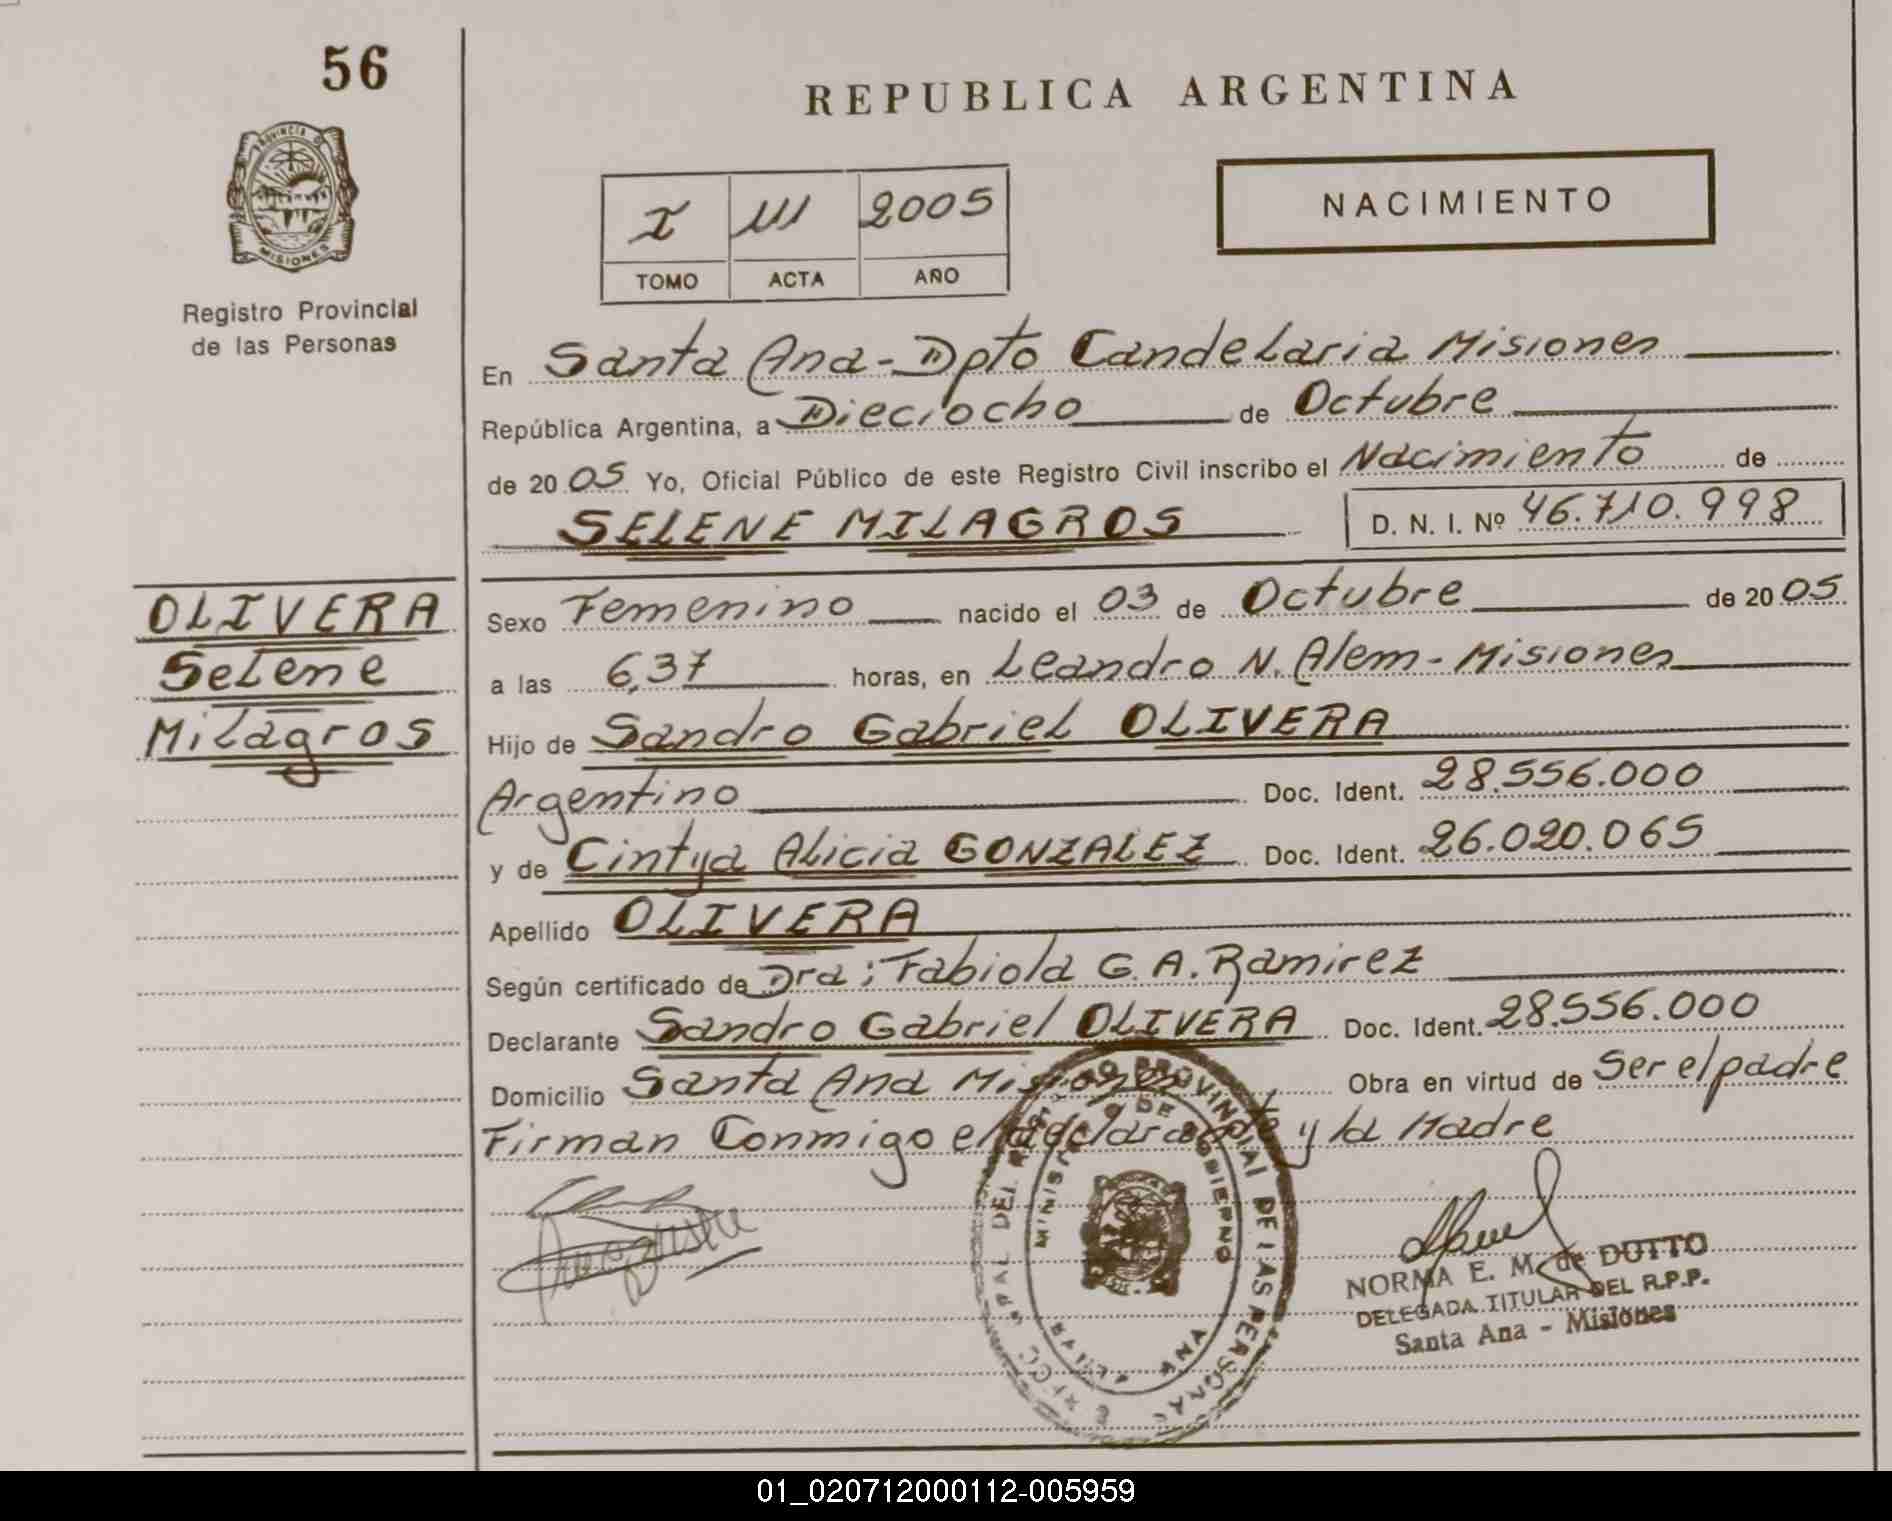 56
REPUBLICA ARGENTINA
PROVINCIA DE
MISIONES
Registro Provincial
de las Personas
I 111 2005
TOMO ACTA AÑO
NACIMIENTO
En Santa Ana - Dpto Candelaria Misiones
República Argentina, a Dieciocho de Octubre
de 2005 Yo, Oficial Público de este Registro Civil inscribo el Nacimiento de
SELENE MILAGROS D. N. I. Nº 46.710.998
OLIVERA
Selene
Milagros
Sexo Femenino nacido el 03 de Octubre de 2005
a las 6,37 horas, en Leandro N. Alem - Misiones
Hijo de Sandro Gabriel OLIVERA
Argentino Doc. Ident. 28.556.000
y de Cintya Alicia GONZALEZ Doc. Ident. 26.020.065
Apellido OLIVERA
Según certificado de Dra; Fabiola G. A. Ramirez
Declarante Sandro Gabriel OLIVERA Doc. Ident. 28.556.000
Domicilio Santa Ana Misiones Obra en virtud de Ser el padre
Firman Conmigo el declarante y la Madre
PROVINCIAL DE LAS PERSONAS
MINISTERIO DE GOBIERNO
NORMA E. M. de DUTTO
DELEGADA TITULAR DEL R.P.P.
Santa Ana - Misiones
01_020712000112-005959